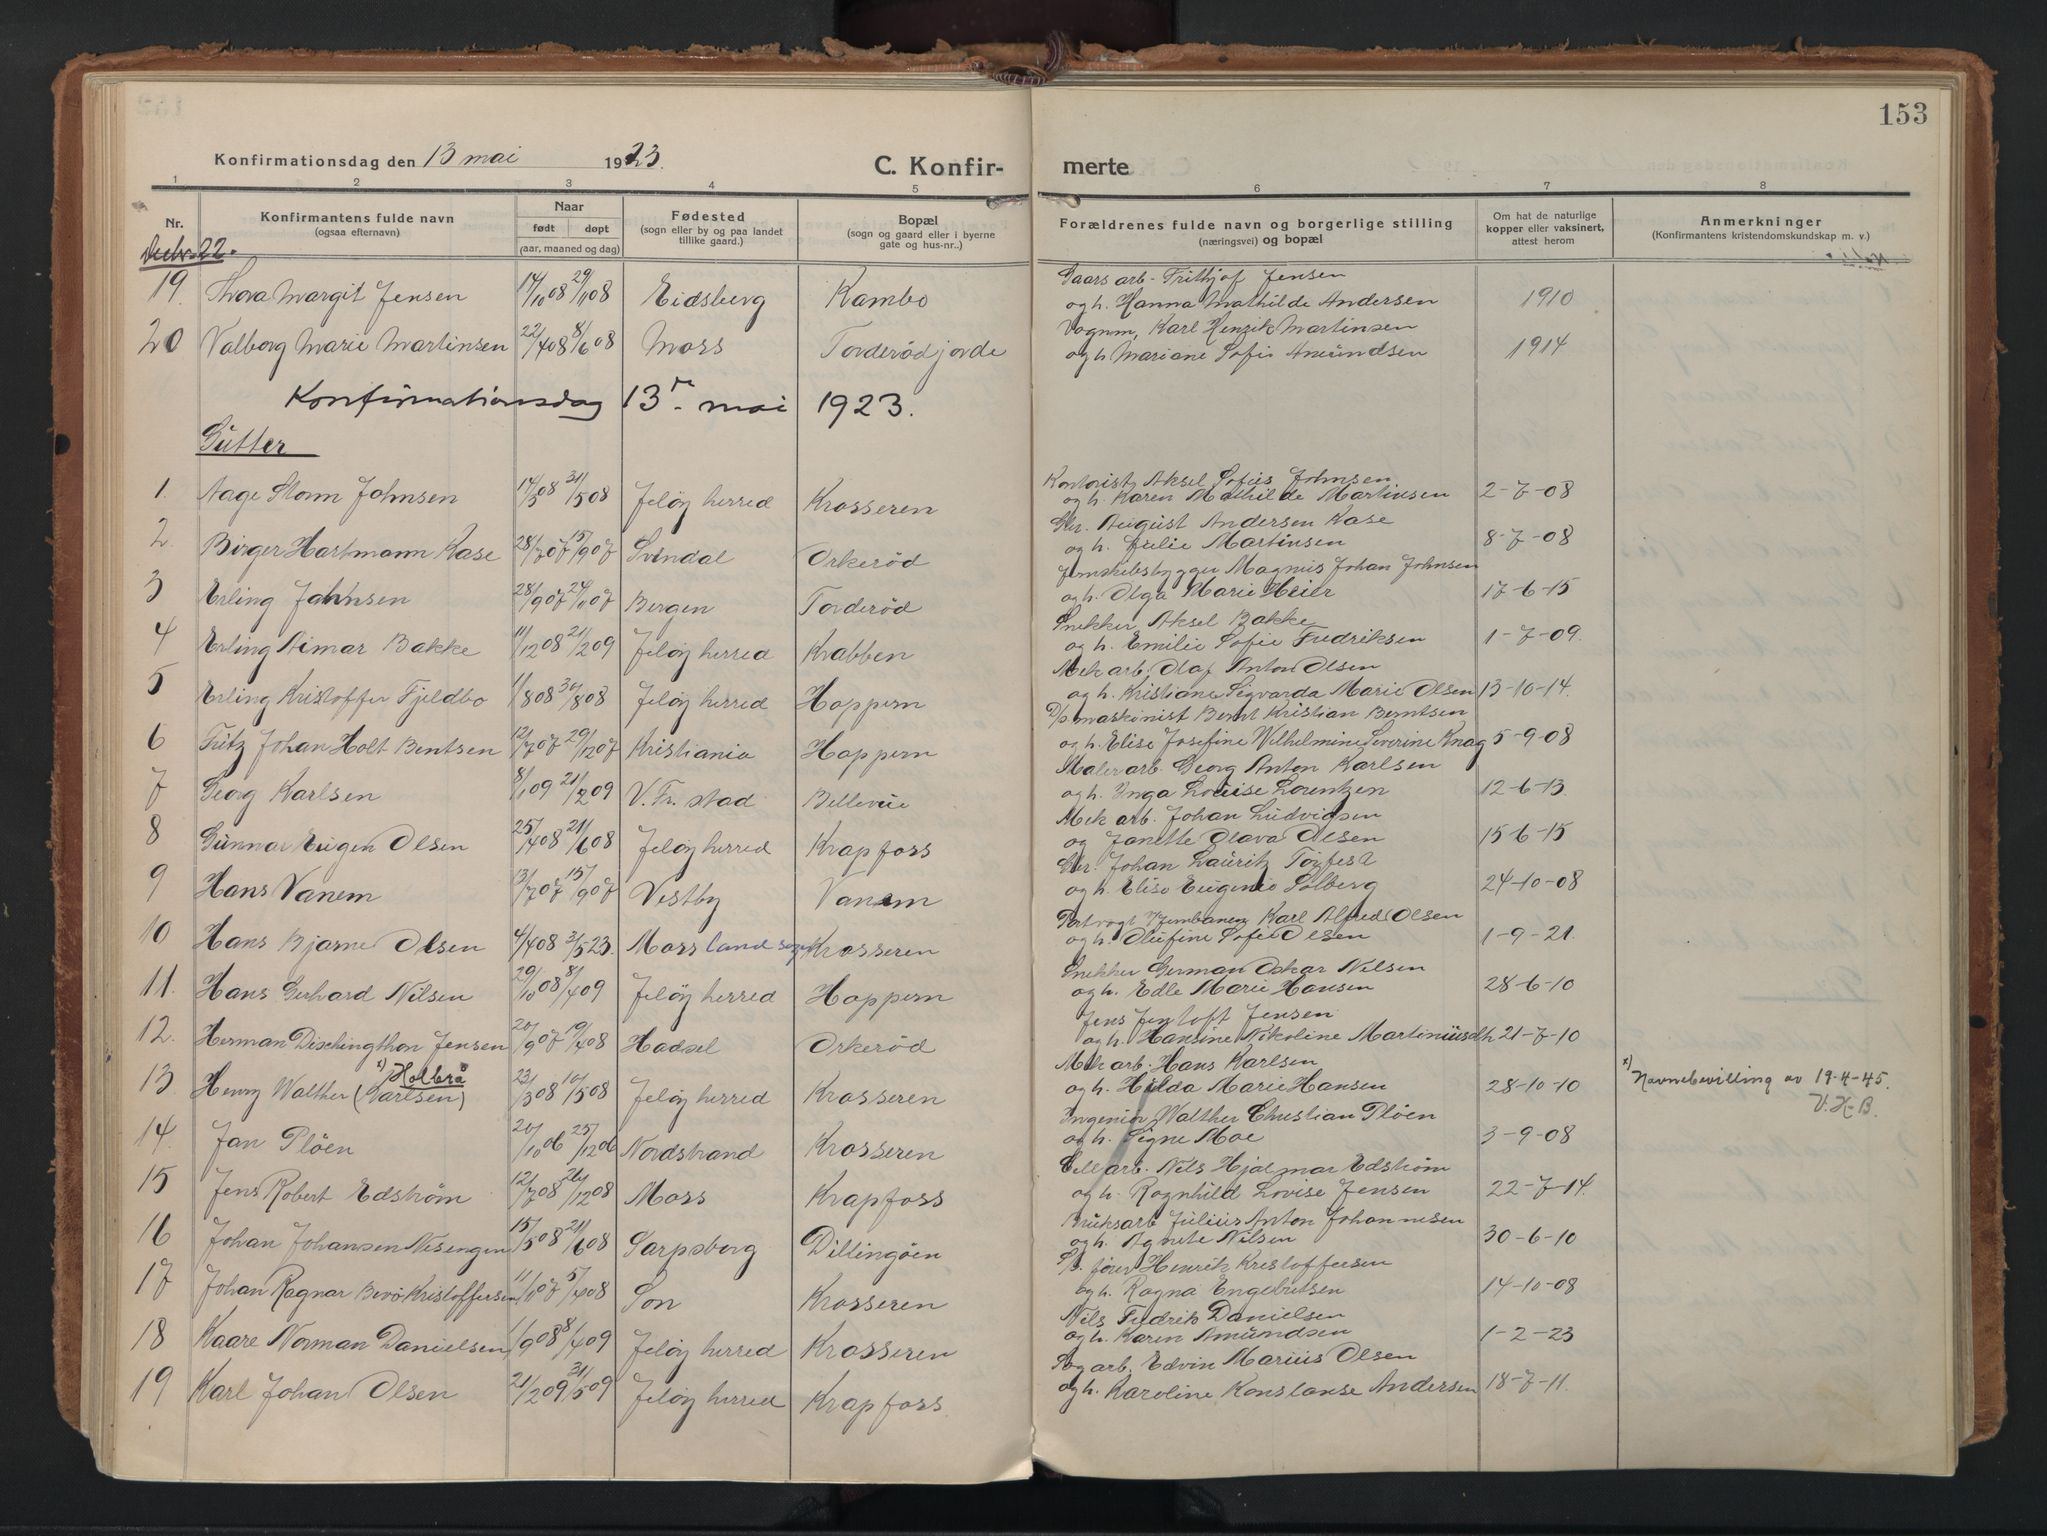 153
Konfirmationsdag den 13 mai 1923.
C. Konfir-
merte
1 2 3 4 5 6 7 8
Nr.
Konfirmantens fulde navn
(ogsaa efternavn)
Naar
født døpt
(aar, maaned og dag)
Fødested
(sogn eller by og paa landet
tillike gaard.)
Bopæl
(sogn og gaard eller i byerne
gate og hus-nr..)
Forældrenes fulde navn og borgerlige stilling
(næringsvei) og bopæl
Om hat de naturlige
kopper eller vaksinert,
attest herom
Anmerkninger
(Konfirmantens kristendomskundskap m. v.)
Decbr. 22.
19 Thora Margit Jensen 14/10 08 29/11 08 Eidsberg Kambo
Gaarsarb. Frithjof Jensen
og h. Hanna Mathilde Andersen 1910
20 Valborg Marie Martinsen 22/4 08 8/6 08 Moss Torderødjorde
Vognm. Karl Henrik Martinsen
og h. Mariane Sofie Amundsen 1914
Konfirmationsdag 13. mai 1923.
Gutter
1. Aage Storm Johnsen 14/3 08 31/5 08 Jeløy herred Krosseren
Kontorist Aksel Sofus Johnsen
og h. Karen Mathilde Martinsen 2-7-08
2. Birger Hartmann Kase 28/7 07 15/9 07 Svendal Orkerød
Gbr. August Andersen Kase
og h. Julie Martinsen 8-7-08
3 Erling Johnsen 28/9 07 24/11 07 Bergen Torderød
Jernskibsbygger Magnus Johan Johnsen
og h. Olga Marie Meier 17-6-15
4 Erling Aimar Bakke 11/12 08 21/2 09 Jeløy herred Krabben
Snekker Aksel Bakke
og h. Emilie Sofie Fredriksen 1-7-09.
5 Erling Kristoffer Fjeldbo 1/8 08 30/8 08 Jeløy herred Hoppern
Mek arb. Olaf Anton Olsen
og h. Kristiane Sigvarda Marie Olsen 13-10-14.
6 Fritz Johan Holt Bentsen 12/7 07 29/12 07 Kristiania Hoppern
D/s maskinist Bernt Kristian Berntsen
og h. Elise Josefine Vilhelmine Severine Knag 5-9-08
7 Georg Karlsen 8/1 09 21/2 09 V. Fr. stad Bellevue
Malerarb. Georg Anton Karlsen
og h. Inga Louise Lorentzen 12-6-13.
8 Gunnar Eugen Olsen 25/4 08 21/6 08 Jeløy herred Krapfoss
Mek arb. Johan Ludvigsen
og Janette Olava Olsen 15-6-15
9 Hans Vanem 3/7 07 15/9 07 Vestby Vanem
Gbr. Johan Lauritz
og h. Elise Eugenie Solberg 24-10-08
10 Hans Bjarne Olsen 4/4 08 3/5 23. Moss landsogn Krosseren
Karl Alfred Olsen
og h. Olufine Sofie Olsen 1-9-21.
11. Hans Gerhard Nilsen 29/10 08 8/4 09 Jeløy herred Hoppern
Snekker German Oskar Nilsen
og h. Edle Marie Hansen 28-6-10
12. Herman Dischingthon Jensen 20/9 07 19/4 08 Hadsel Orkerød
Jens Jentoft Jensen
og h. Hansine Nikoline Martiniusdh 21-7-10
13 Henry Walther (Karlsen) x) Holbrå 23/3 08 10/5 08 Jeløy herred Krosseren
Mek arb. Hans Karlsen
og h. Hilda Marie Hansen 28-10-10
x) Navnebevilling av 19-4-45.
V. H-B.
14. Jan Pløen 20/10 06 25/12 06 Nordstrand Krosseren
Ingeniør Walther Christian Pløen
og h. Signe Moe 3-9-08
15 Jens Robert Edstrøm 12/7 08 26/12 08 Moss Krapfoss
Cellarb. Nils Hjalmar Edstrøm
og h. Ragnhild Lovise Jensen 22-7-14.
16 Johan Johansen Nesengen 15/5 08 21/6 08 Sarpsborg Dillingøen
Bruksarb Julius Anton Johannesen
og h. Agnete Nilsen 30-6-10
17 Johan Ragnar Bevø Kristoffersen 11/10 07 5/4 08 Son Krosseren
S/s. fører Henrik Kristoffersen
og h. Ragna Engebretsen 14-10-08
18 Kaare Norman Danielsen 1/9 08 8/4 09 Jeløy herred Krosseren
Nils Fredrik Danielsen
og h. Karen Amundsen 1-2-23
19 Karl Johan Olsen 21/2 09 31/5 09 Jeløy herred Krapfoss
Sagarb. Edvin Marius Olsen
og h. Karoline Konstanse Andersen 18-7-11.